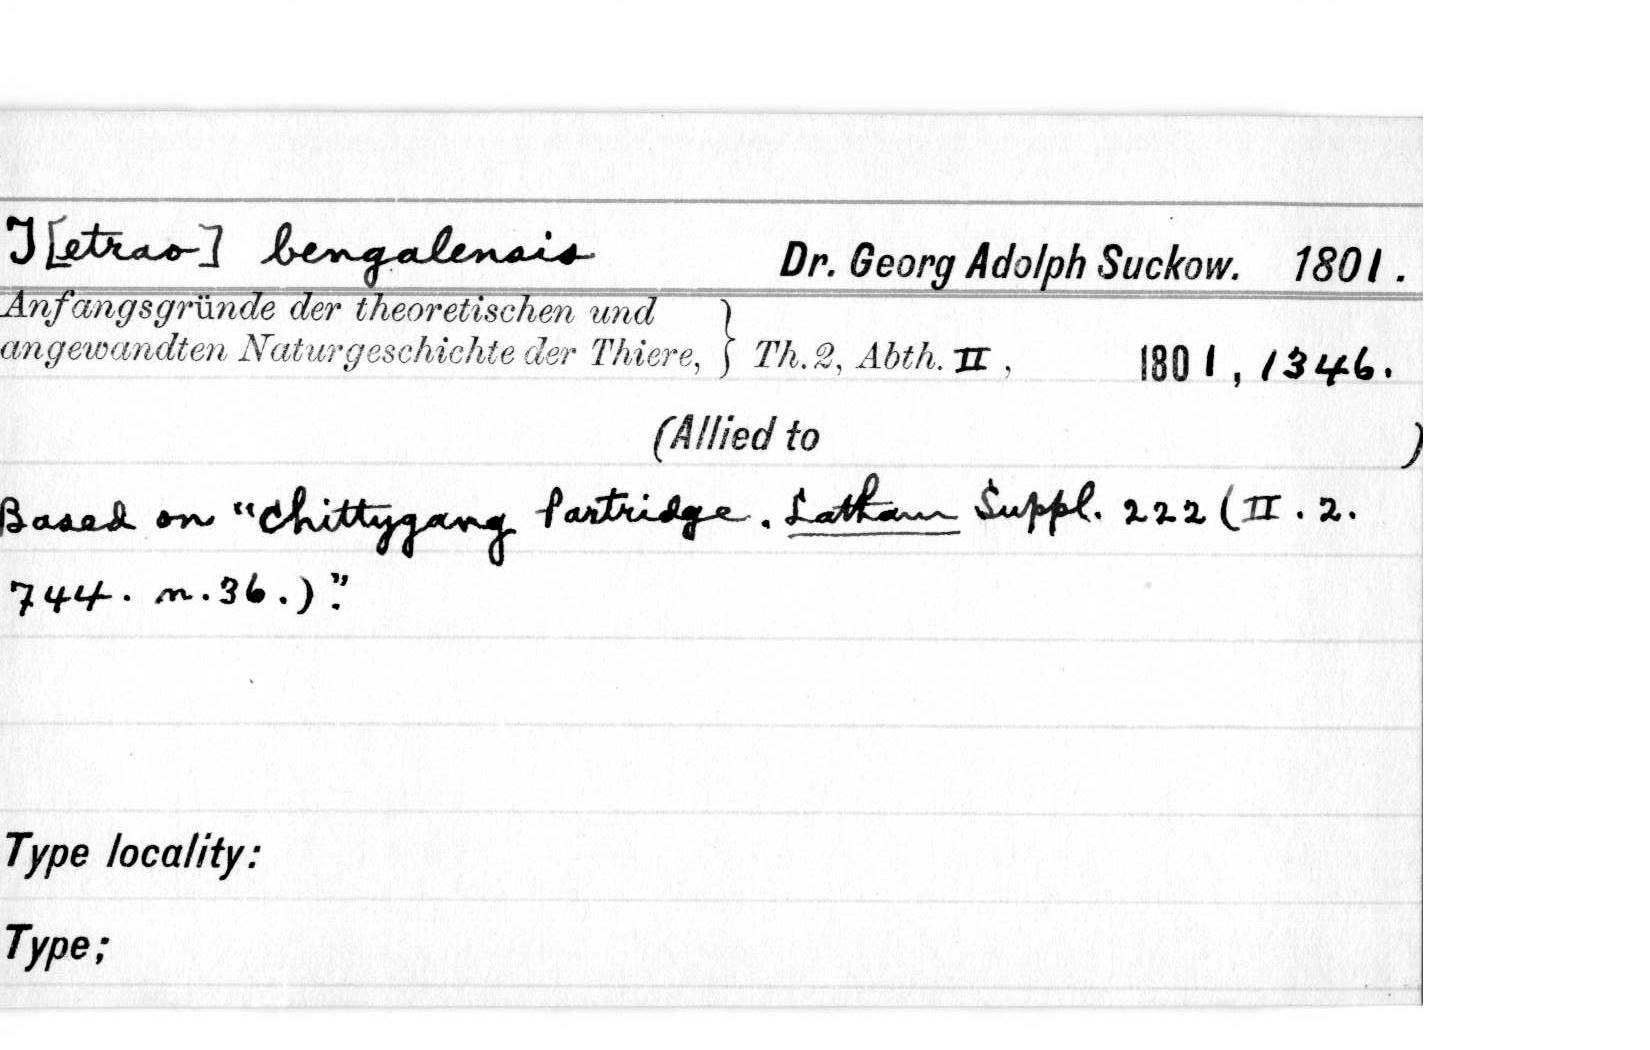 T[etrao] bengalensis Dr. Georg Adolph Suckow. 1801.
Anfangsgründe der theoretischen und
angewandten Naturgeschichte der Thiere, } Th. 2, Abth. II, 1801, 1346.
(Allied to )
Based on "Chittygang Partridge. Latham Suppl. 222 (II. 2.
744. n. 36.)".
Type locality:
Type;